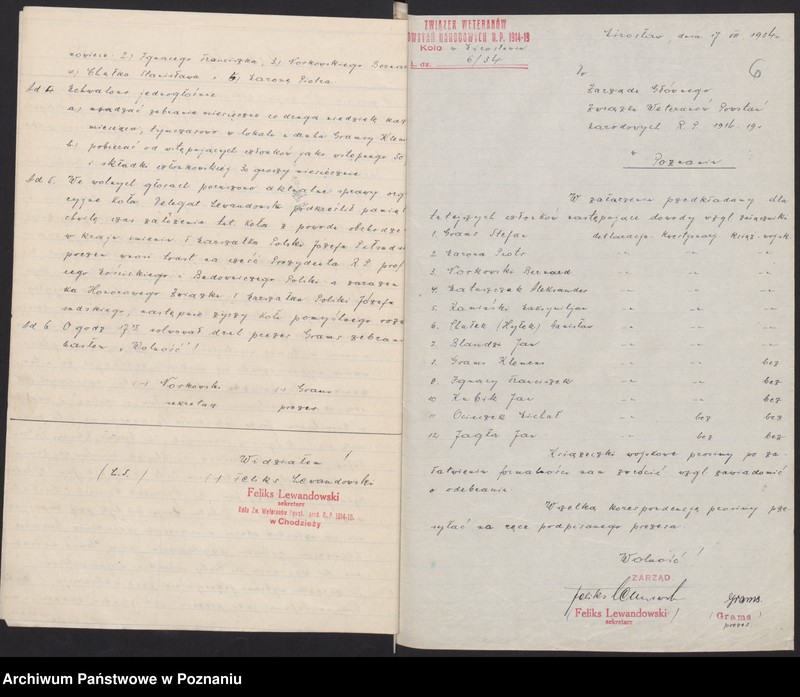 nowicie: 2) Ignacego Franciszka, 3) Norkowskiego Bernar
4) Chełka Stanisława i 5) Zarona Piotra.
Ad 4. Uchwalono jednogłośnie
a) urządzać zebranie miesięczne co druga niedziela każ
miesiąca, tymczasowo w lokalu u druha Gramsy Klem
b) pobierać od wstępujących członków jako wstępnego 50
i składki członkowskiej 30 groszy miesięcznie
Ad 5. We wolnych głosach poruszono aktualne sprawy org
cyjne koła. Delegat Lewandowski podkreślił pamięt
chwilę czas założenia tut. koła z powodu obchodzo
w kraju imienin I Marszałka Polski Józefa Piłsuds
prezes wzniósł toast na cześć Prezydenta R. P. prof
cego Mościckiego i Budowniczego Polski a zarazem
ka Honorowego Związku I Marszałka Polski Józefa
sudskiego, następnie życzy kołu pomyślnego rozw
Ad 6. O godz 17 rozwiązał druh prezes Grams zebran
hasłem „Wolność"!
(-) Norkowski (-) Grams
sekretarz prezes
Widziałem!
(L.S.) (-) Feliks Lewandowski
Feliks Lewandowski
sekretarz
Koła Zw. Weteranów Powst. Nrod. R. P. 1914-19.
w Chodzieży
ZWIĄZEK WETERANÓW
POWSTAŃ NARODOWYCH R. P. 1914-19
Koło w Mirosławiu
L. dz. 6/34
Mirosław, dnia 17 III 1934.
6
Do
Zarządu Głównego
Związku Weteranów Powstań
Narodowych R. P. 1914-19.
w Poznaniu
W załączeniu przedkładamy dla
tutejszych członków następujące dowody wzgl. załączniki
1. Grams Stefan deklaracja kwestjonarj. książ. wojsk.
2. Zarona Piotr -"- -"- -"-
3. Norkowski Bernard -"- -"- -"-
4. Aleksander -"- -"- -"-
5. Kamiński Maksymiljan -"- -"- -"-
6. Chełek (Hylek) Stanisław -"- -"- -"-
7. Blandzi Jan -"- -"- -"-
8. Grams Klemens -"- -"- bez
9. Ignacy Franciszek -"- -"- bez
10. Kubik Jan -"- -"- bez
11. Ociepek Michał -"- bez bez
12. Jagła Jan -"- bez bez
Książeczki wojskowe prosimy po za-
łatwieniu formalności nam zwrócić wzgl. zawiadomić
o odebranie.
Wszelką korespondencję prosimy prze
syłać na ręce podpisanego prezesa.
Wolność!
ZARZĄD
Feliks Lewandowski Grams
(Feliks Lewandowski) (Grams)
sekretarz prezes
Archiwum Państwowe w Poznaniu